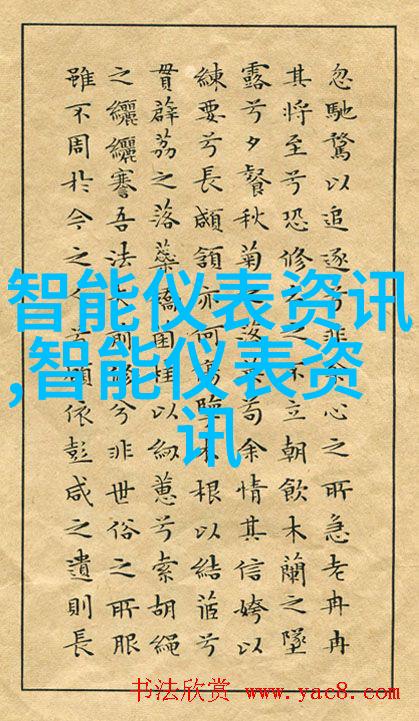 忽馳騖以追逐兮非余心之所急老冉冉
其將至兮恐修之不立朝飲木蘭之墜
露兮夕餐秋菊之英苟余情其信姱以
練要兮長顑頷亦何木根以結茝兮
貫薜荔之落蘂矯菌桂以紉蕙兮索胡繩
之纚纚謇吾法夫前修兮非世俗之所服
雖不周於今之人兮願依彭咸之遺則長
智能仪表资讯
,智能仪表资
讯
书法欣赏 www.yac8.com